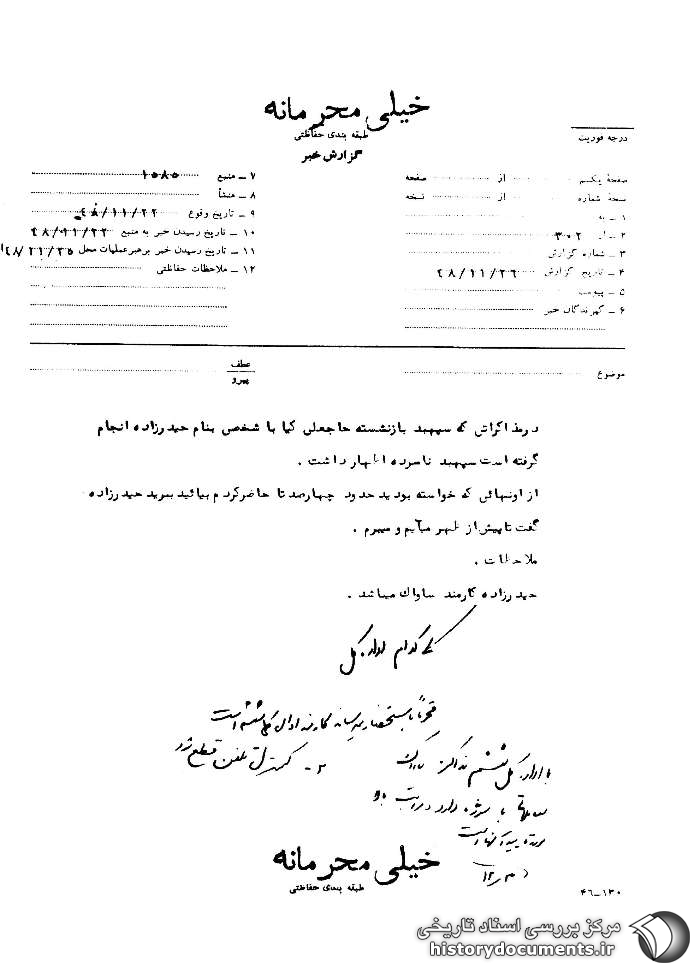 خیلی محرمانه
طبقه بندی حفاظتی
گزارش خبر
درجه فوریت
صفحهٔ یکم از صفحه
نسخهٔ شماره از نسخه
۱ – به
۲ – از ۳۰۲
۳ – شماره گزارش
۴ – تاریخ گزارش ۴۸/۱۱/۲۶
۵ – پیوست
۶ – گیرندگان خبر
۷ – منبع ۱۰۸۵
۸ – منشأ
۹ – تاریخ وقوع ۴۸/۱۱/۲۲
۱۰ – تاریخ رسیدن خبر به منبع ۴۸/۱۱/۲۲
۱۱ – تاریخ رسیدن خبر برهبر عملیات محل ۴۸/۱۱/۲۵
۱۲ – ملاحظات حفاظتی
موضوع
عطف
پیرو
در مذاکراتی که سپهبد بازنشسته حاجعلی کیا با شخصی بنام حیدرزاده انجام
گرفته است سپهبد نامبرده اظهار داشت .
از اونهائی که خواسته بودید حدود چهارصد تا حاضر کردم بیائید ببرید حیدرزاده
گفت تا پیش از ظهر میآیم و میبرم .
ملاحظات .
حیدرزاده کارمند ساواک میباشد .
کدام اداره کل
کارمند اداره کل ششم است
با اداره کل ششم مذاکره
۲ – کنترل تلفن قطع شود
خیلی محرمانه
طبقه بندی حفاظتی
۴۶–۱۳۰
مرکز بررسی اسناد تاریخی
historydocuments.ir